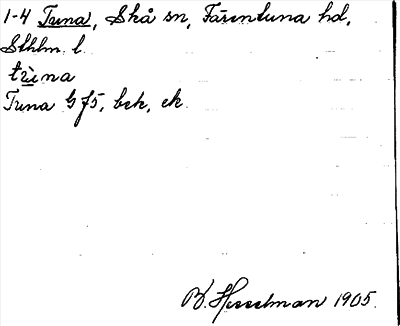 1-4 Tuna, Skå sn, Färentuna hd,
Sthlm l.
Tuna G f5, bek, ek
B. Hesselman 1905.